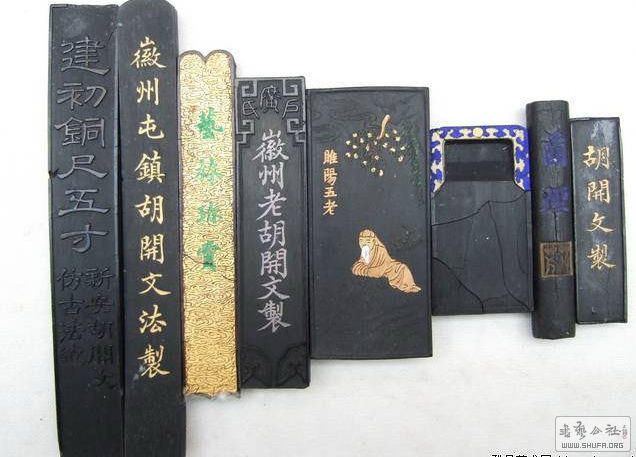 建初銅尺五寸
新安胡開文
仿古法製
徽州屯鎮胡開文法製
藝林珍賞
徽州老胡開文製
睢陽五老
胡開文製
書藝公社
WWW.SHUFA.ORG